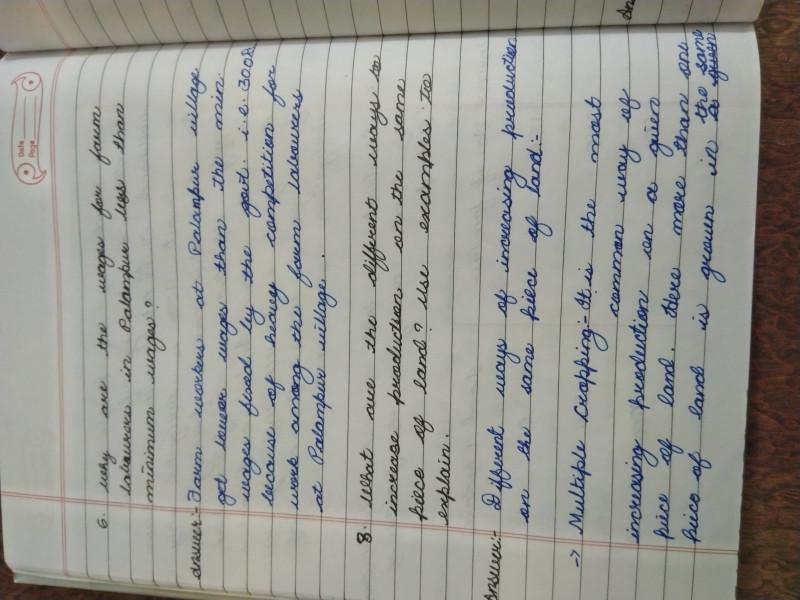 Date
Page
6. Why are the wages for farm
labourers in Palampur less than
minimum wages?
Answer:- Farm workers at Palampur village
get lower wages than the min.
wages fixed by the govt. i.e. 300R
because of heavy competition for
work among the farm labourers
at Palampur village.
8. What are the different ways to
increase production on the same
piece of land? Use examples to
explain.
Answer:- Different ways of increasing production
on the same piece of land:-
-> Multiple cropping:- It is the most
common way of
increasing production on a given
piece of land. Here more than one
piece of land is grown in the same